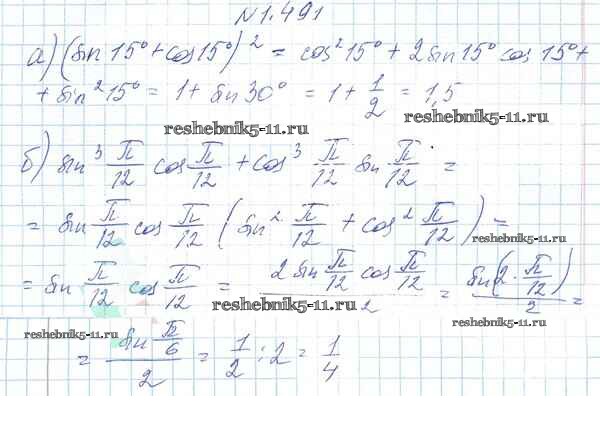 №1.491
а) (sin 15° + cos 15°)² = cos² 15° + 2 sin 15° cos 15° +
+ sin² 15° = 1 + sin 30° = 1 + 1/2 = 1,5
reshebnik5-11.ru
reshebnik5-11.ru
б) sin³ π/12 cos π/12 + cos³ π/12 sin π/12 =
= sin π/12 cos π/12 (sin² π/12 + cos² π/12) =
reshebnik5-11.ru
= sin π/12 cos π/12 = (2 sin π/12 cos π/12)/2 = sin(2 · π/12)/2 =
reshebnik5-11.ru
reshebnik5-11.ru
reshebnik5-11.ru
= (sin π/6)/2 = 1/2 : 2 = 1/4